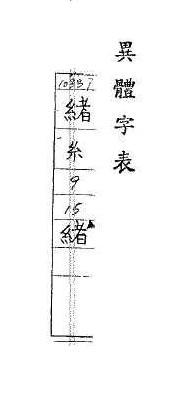 異體字表
10337
緒
糸
9
15
緖